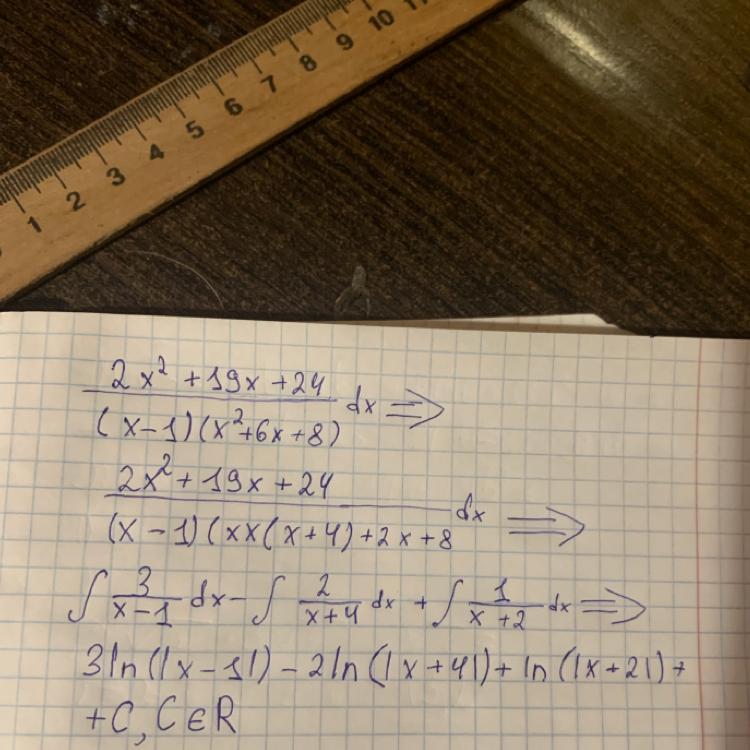 1 2 3 4 5 6 7 8 9 10
2x² + 19x + 24
dx ⇒
(x-1)(x²+6x+8)
2x² + 19x + 24
dx ⇒
(x-1)(xx(x+4)+2x+8
∫ 3/(x-1) dx - ∫ 2/(x+4) dx + ∫ 1/(x+2) dx ⇒
3ln(|x-1|) - 2ln(|x+4|) + ln(|x+2|) +
+C, C∈R